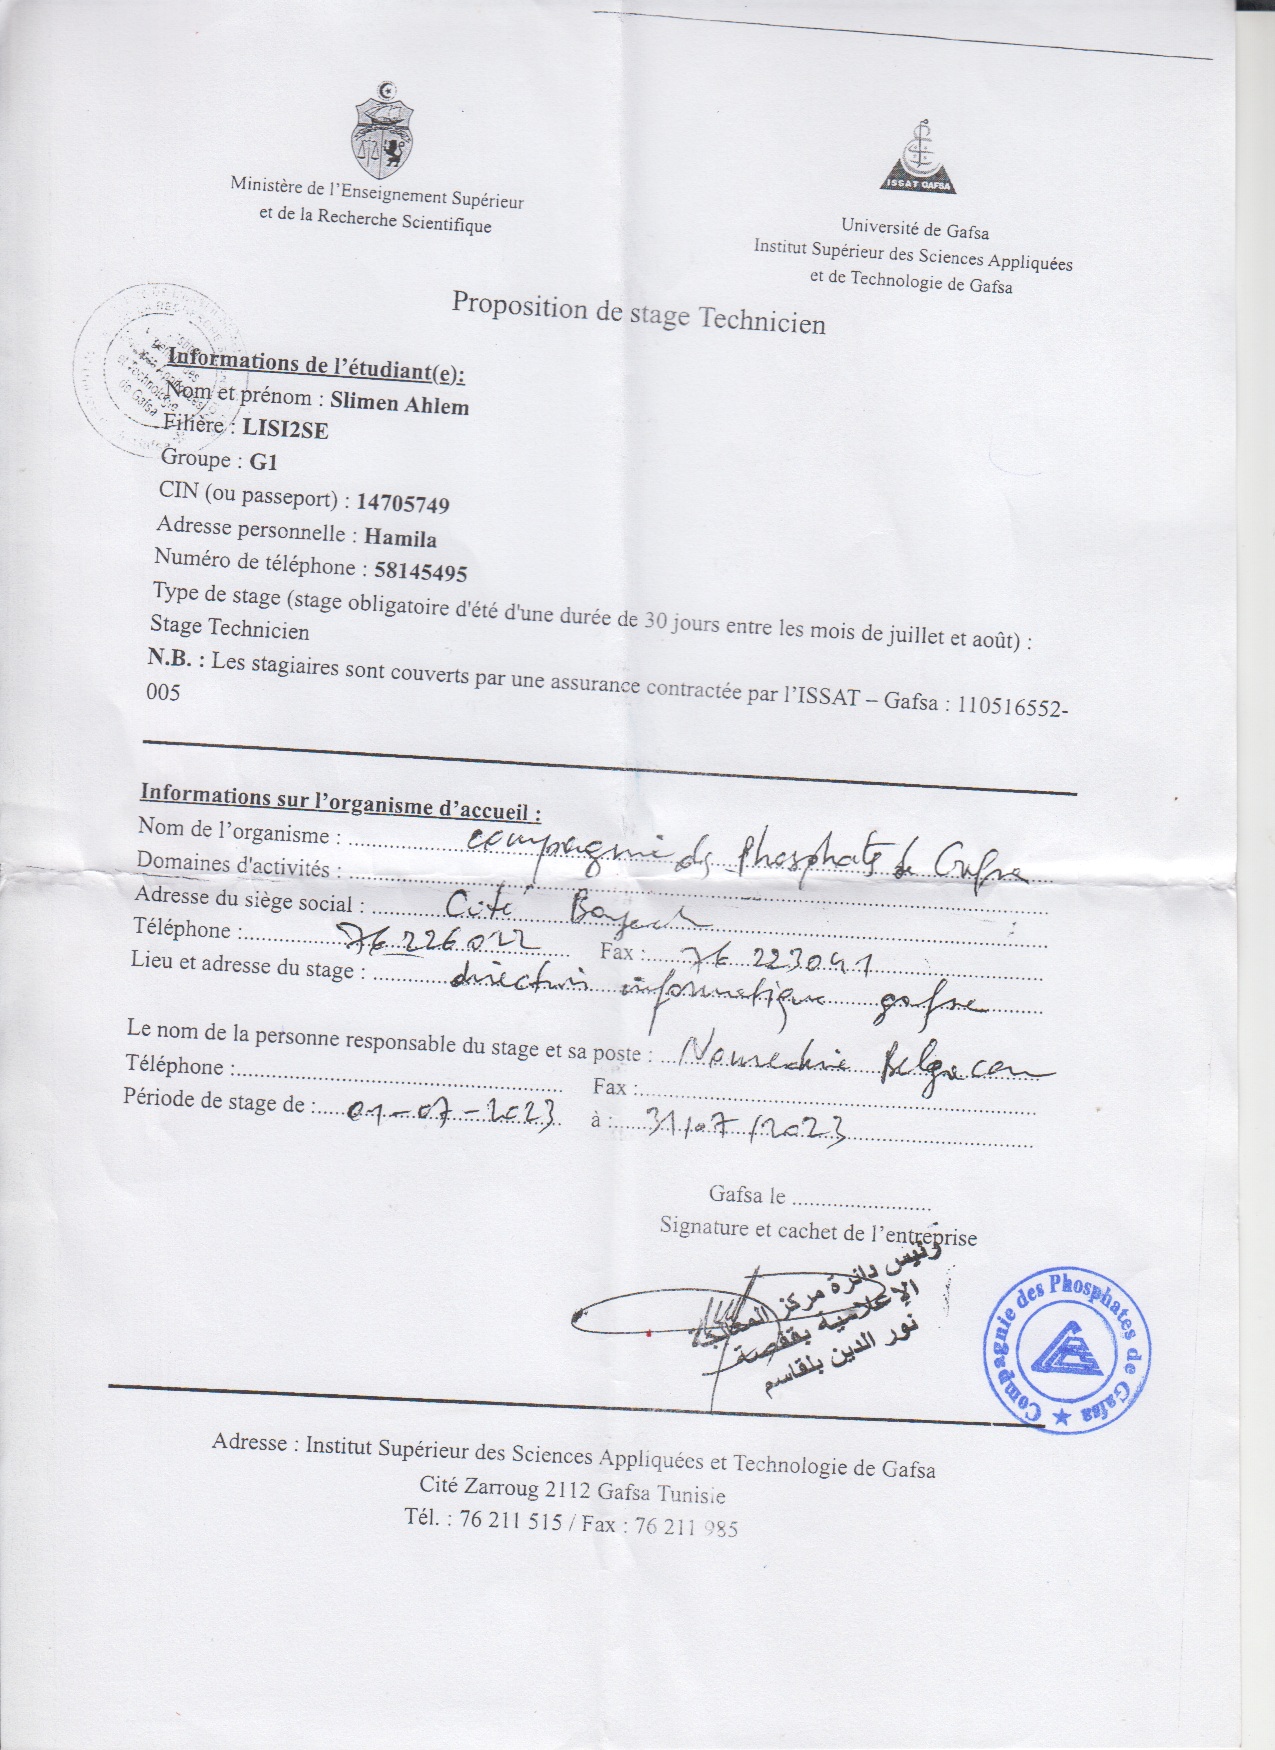 Ministère de l'Enseignement Supérieur
et de la Recherche Scientifique
ISSAT GAFSA
Université de Gafsa
Institut Supérieur des Sciences Appliquées
et de Technologie de Gafsa
Proposition de stage Technicien
Informations de l'étudiant(e):
Nom et prénom : Slimen Ahlem
Filière : LISI2SE
Groupe : G1
CIN (ou passeport) : 14705749
Adresse personnelle : Hamila
Numéro de téléphone : 58145495
Type de stage (stage obligatoire d'été d'une durée de 30 jours entre les mois de juillet et août) :
Stage Technicien
N.B. : Les stagiaires sont couverts par une assurance contractée par l'ISSAT – Gafsa : 110516552-
005
Informations sur l'organisme d'accueil :
Nom de l'organisme : compagnie des Phosphate de Gafsa
Domaines d'activités :
Adresse du siège social : Cité
Téléphone : 76 226 022 Fax : 76 223041
Lieu et adresse du stage : direction informatique gafsa
Le nom de la personne responsable du stage et sa poste : Noureddine Belgacem
Téléphone : Fax :
Période de stage de : 01-07-2023 à : 31/07/2023
Gafsa le
Signature et cachet de l'entreprise
رئيس دائرة مركز المعالجة
الإعلامية بقفصة
نور الدين بلقاسم
Compagnie des Phosphates de Gafsa
Adresse : Institut Supérieur des Sciences Appliquées et Technologie de Gafsa
Cité Zarroug 2112 Gafsa Tunisie
Tél. : 76 211 515 / Fax : 76 211 985